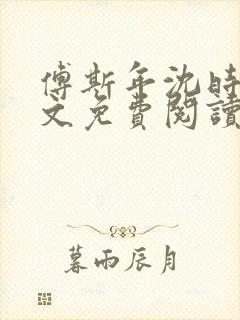 傅斯年沈時
文免費閱讀
暮雨辰月